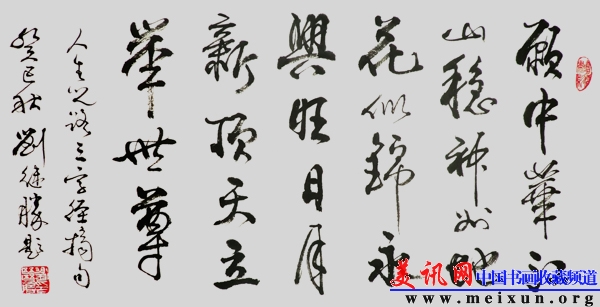 願中華江
山穩神州地
花似錦永
興旺日月
新頂天立
举世尊
人生路三字經摘句
癸巳秋 劉继勝題
美讯网 中国书画收藏频道
www.meixun.org